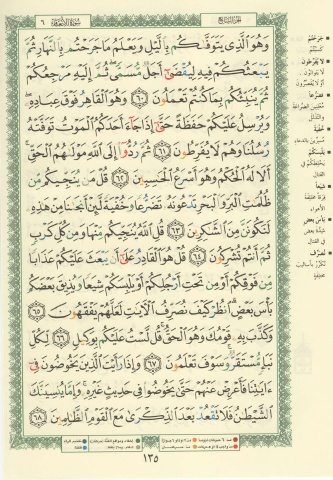 سورة الأنعام ٦
الجزء السابع
وَهُوَ ٱلَّذِى يَتَوَفَّىٰكُم بِٱلَّيْلِ وَيَعْلَمُ مَا جَرَحْتُم بِٱلنَّهَارِ ثُمَّ
يَبْعَثُكُمْ فِيهِ لِيُقْضَىٰٓ أَجَلٌ مُّسَمًّى ثُمَّ إِلَيْهِ مَرْجِعُكُمْ
ثُمَّ يُنَبِّئُكُم بِمَا كُنتُمْ تَعْمَلُونَ ٦٠ وَهُوَ ٱلْقَاهِرُ فَوْقَ عِبَادِهِۦ
وَيُرْسِلُ عَلَيْكُمْ حَفَظَةً حَتَّىٰٓ إِذَا جَآءَ أَحَدَكُمُ ٱلْمَوْتُ تَوَفَّتْهُ
رُسُلُنَا وَهُمْ لَا يُفَرِّطُونَ ٦١ ثُمَّ رُدُّوٓا۟ إِلَى ٱللَّهِ مَوْلَىٰهُمُ ٱلْحَقِّ
أَلَا لَهُ ٱلْحُكْمُ وَهُوَ أَسْرَعُ ٱلْحَـٰسِبِينَ ٦٢ قُلْ مَن يُنَجِّيكُم مِّن
ظُلُمَـٰتِ ٱلْبَرِّ وَٱلْبَحْرِ تَدْعُونَهُۥ تَضَرُّعًا وَخُفْيَةً لَّئِنْ أَنجَىٰنَا مِنْ هَـٰذِهِۦ
لَنَكُونَنَّ مِنَ ٱلشَّـٰكِرِينَ ٦٣ قُلِ ٱللَّهُ يُنَجِّيكُم مِّنْهَا وَمِن كُلِّ كَرْبٍ
ثُمَّ أَنتُمْ تُشْرِكُونَ ٦٤ قُلْ هُوَ ٱلْقَادِرُ عَلَىٰٓ أَن يَبْعَثَ عَلَيْكُمْ عَذَابًا
مِّن فَوْقِكُمْ أَوْ مِن تَحْتِ أَرْجُلِكُمْ أَوْ يَلْبِسَكُمْ شِيَعًا وَيُذِيقَ بَعْضَكُم
بَأْسَ بَعْضٍ ٱنظُرْ كَيْفَ نُصَرِّفُ ٱلْـَٔايَـٰتِ لَعَلَّهُمْ يَفْقَهُونَ ٦٥
وَكَذَّبَ بِهِۦ قَوْمُكَ وَهُوَ ٱلْحَقُّ قُل لَّسْتُ عَلَيْكُم بِوَكِيلٍ ٦٦ لِّكُلِّ
نَبَإٍ مُّسْتَقَرٌّ وَسَوْفَ تَعْلَمُونَ ٦٧ وَإِذَا رَأَيْتَ ٱلَّذِينَ يَخُوضُونَ فِىٓ
ءَايَـٰتِنَا فَأَعْرِضْ عَنْهُمْ حَتَّىٰ يَخُوضُوا۟ فِى حَدِيثٍ غَيْرِهِۦ وَإِمَّا يُنسِيَنَّكَ
ٱلشَّيْطَـٰنُ فَلَا تَقْعُدْ بَعْدَ ٱلذِّكْرَىٰ مَعَ ٱلْقَوْمِ ٱلظَّـٰلِمِينَ ٦٨
جرحتم
كسبتم
لا يفرطون
لا يتوانون
تضرعا
خفية
يلبسكم
شيعا
بأس بعض
نصرف
١٣٥